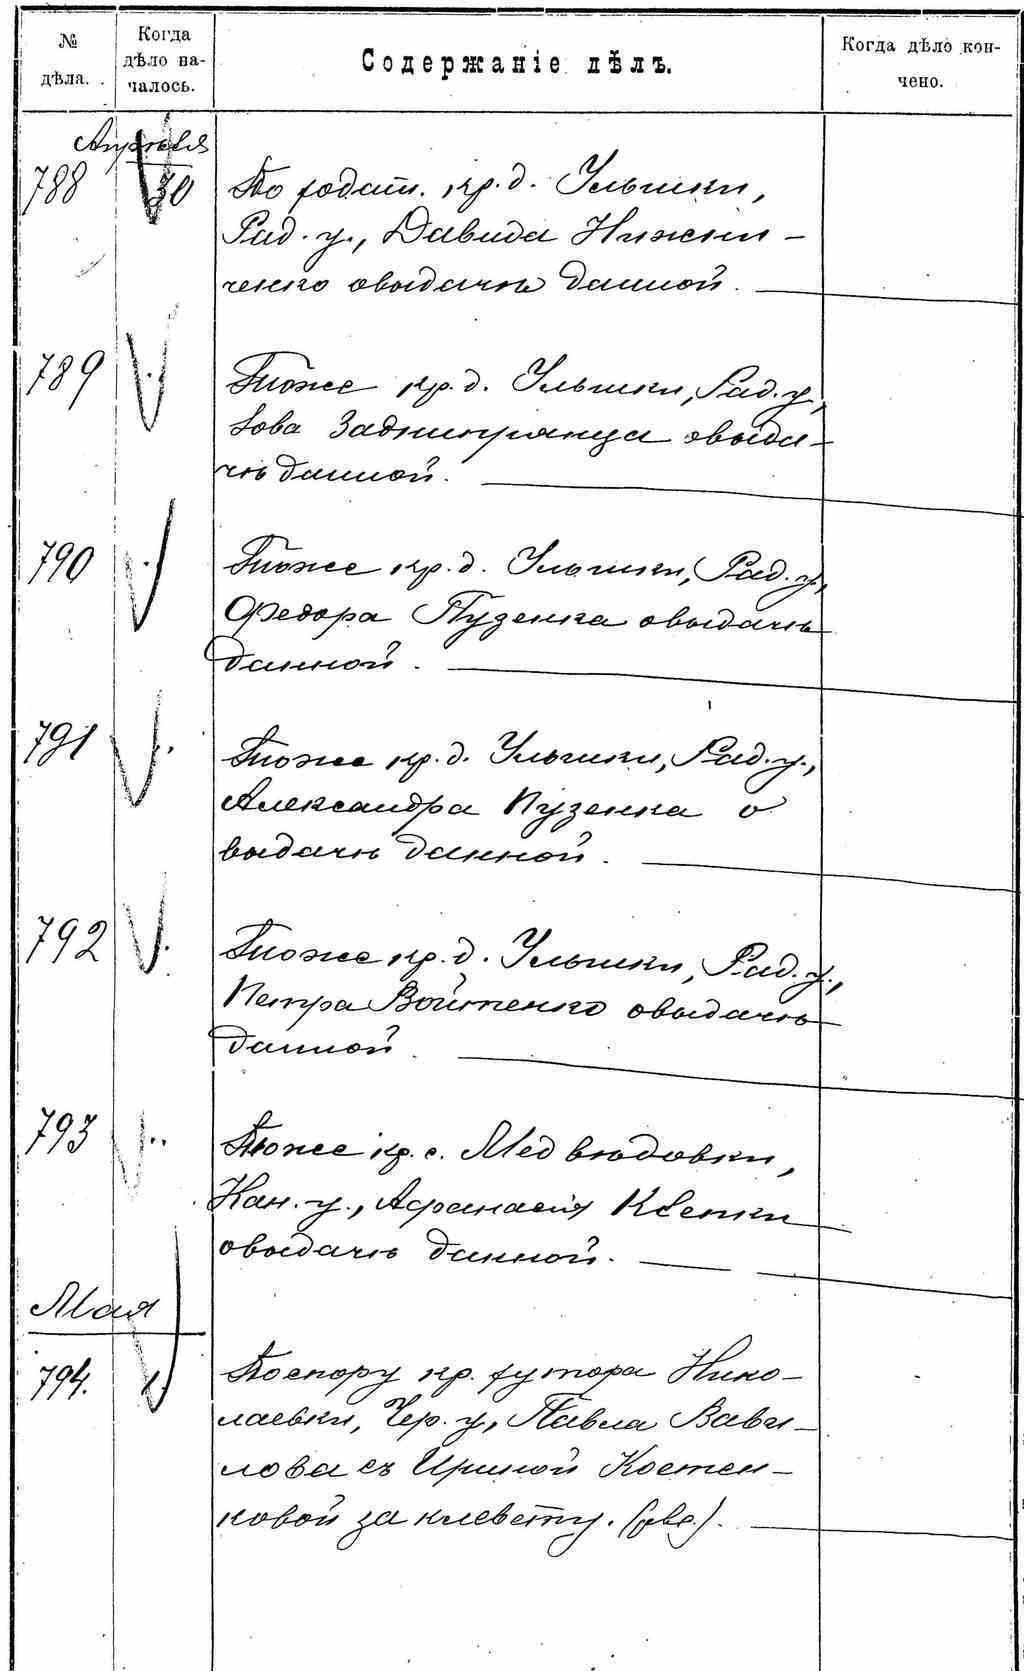 № дѣла.
Когда дѣло началось.
Содержаніе дѣлъ.
Когда дѣло кончено.
Апрѣля
788 30 По ходат. кр. д. Ульяшки,
Рад. у., Давида Нижни-
ченко о выдачѣ данной.
789 Тоже кр. д. Ульяшки, Рад. у.,
Заднипрянца о выда-
чѣ данной.
790 Тоже кр. д. Ульяшки, Рад. у.,
Федора Пузенка о выдачѣ
данной.
791 Тоже кр. д. Ульяшки, Рад. у.,
Александра Пузенка о
выдачѣ данной.
792 Тоже кр. д. Ульяшки, Рад. у.,
Петра Войтенко о выдачѣ
данной.
793 Тоже кр. с. Медвѣдовки,
Кан. у., Афанасія
о выдачѣ данной.
Мая
794. 1. По спору кр. хутора Нико-
лаевки, Чер. у., Павла Вави-
лова съ Ириной Костен-
ковой за клевету.